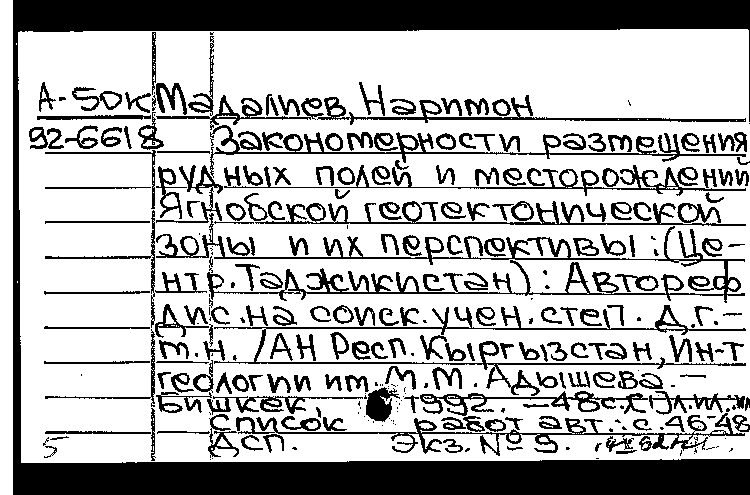 А-50к Мадалиев, Наримон
92-6618 Закономерности размещения
рудных полей и месторождений
Ягнобской геотектонической
зоны и их перспективы : (Це-
нтр. Таджикистан) : Автореф
дис. на соиск. учен. степ. д.г.-
м.н. /АН Респ. Кыргызстан, Ин-т
геологии им. М.М. Адышева. —
Бишкек, 1992. — 48с.
Список работ авт.: с. 46-48
5 ДСП. Экз. № 9.